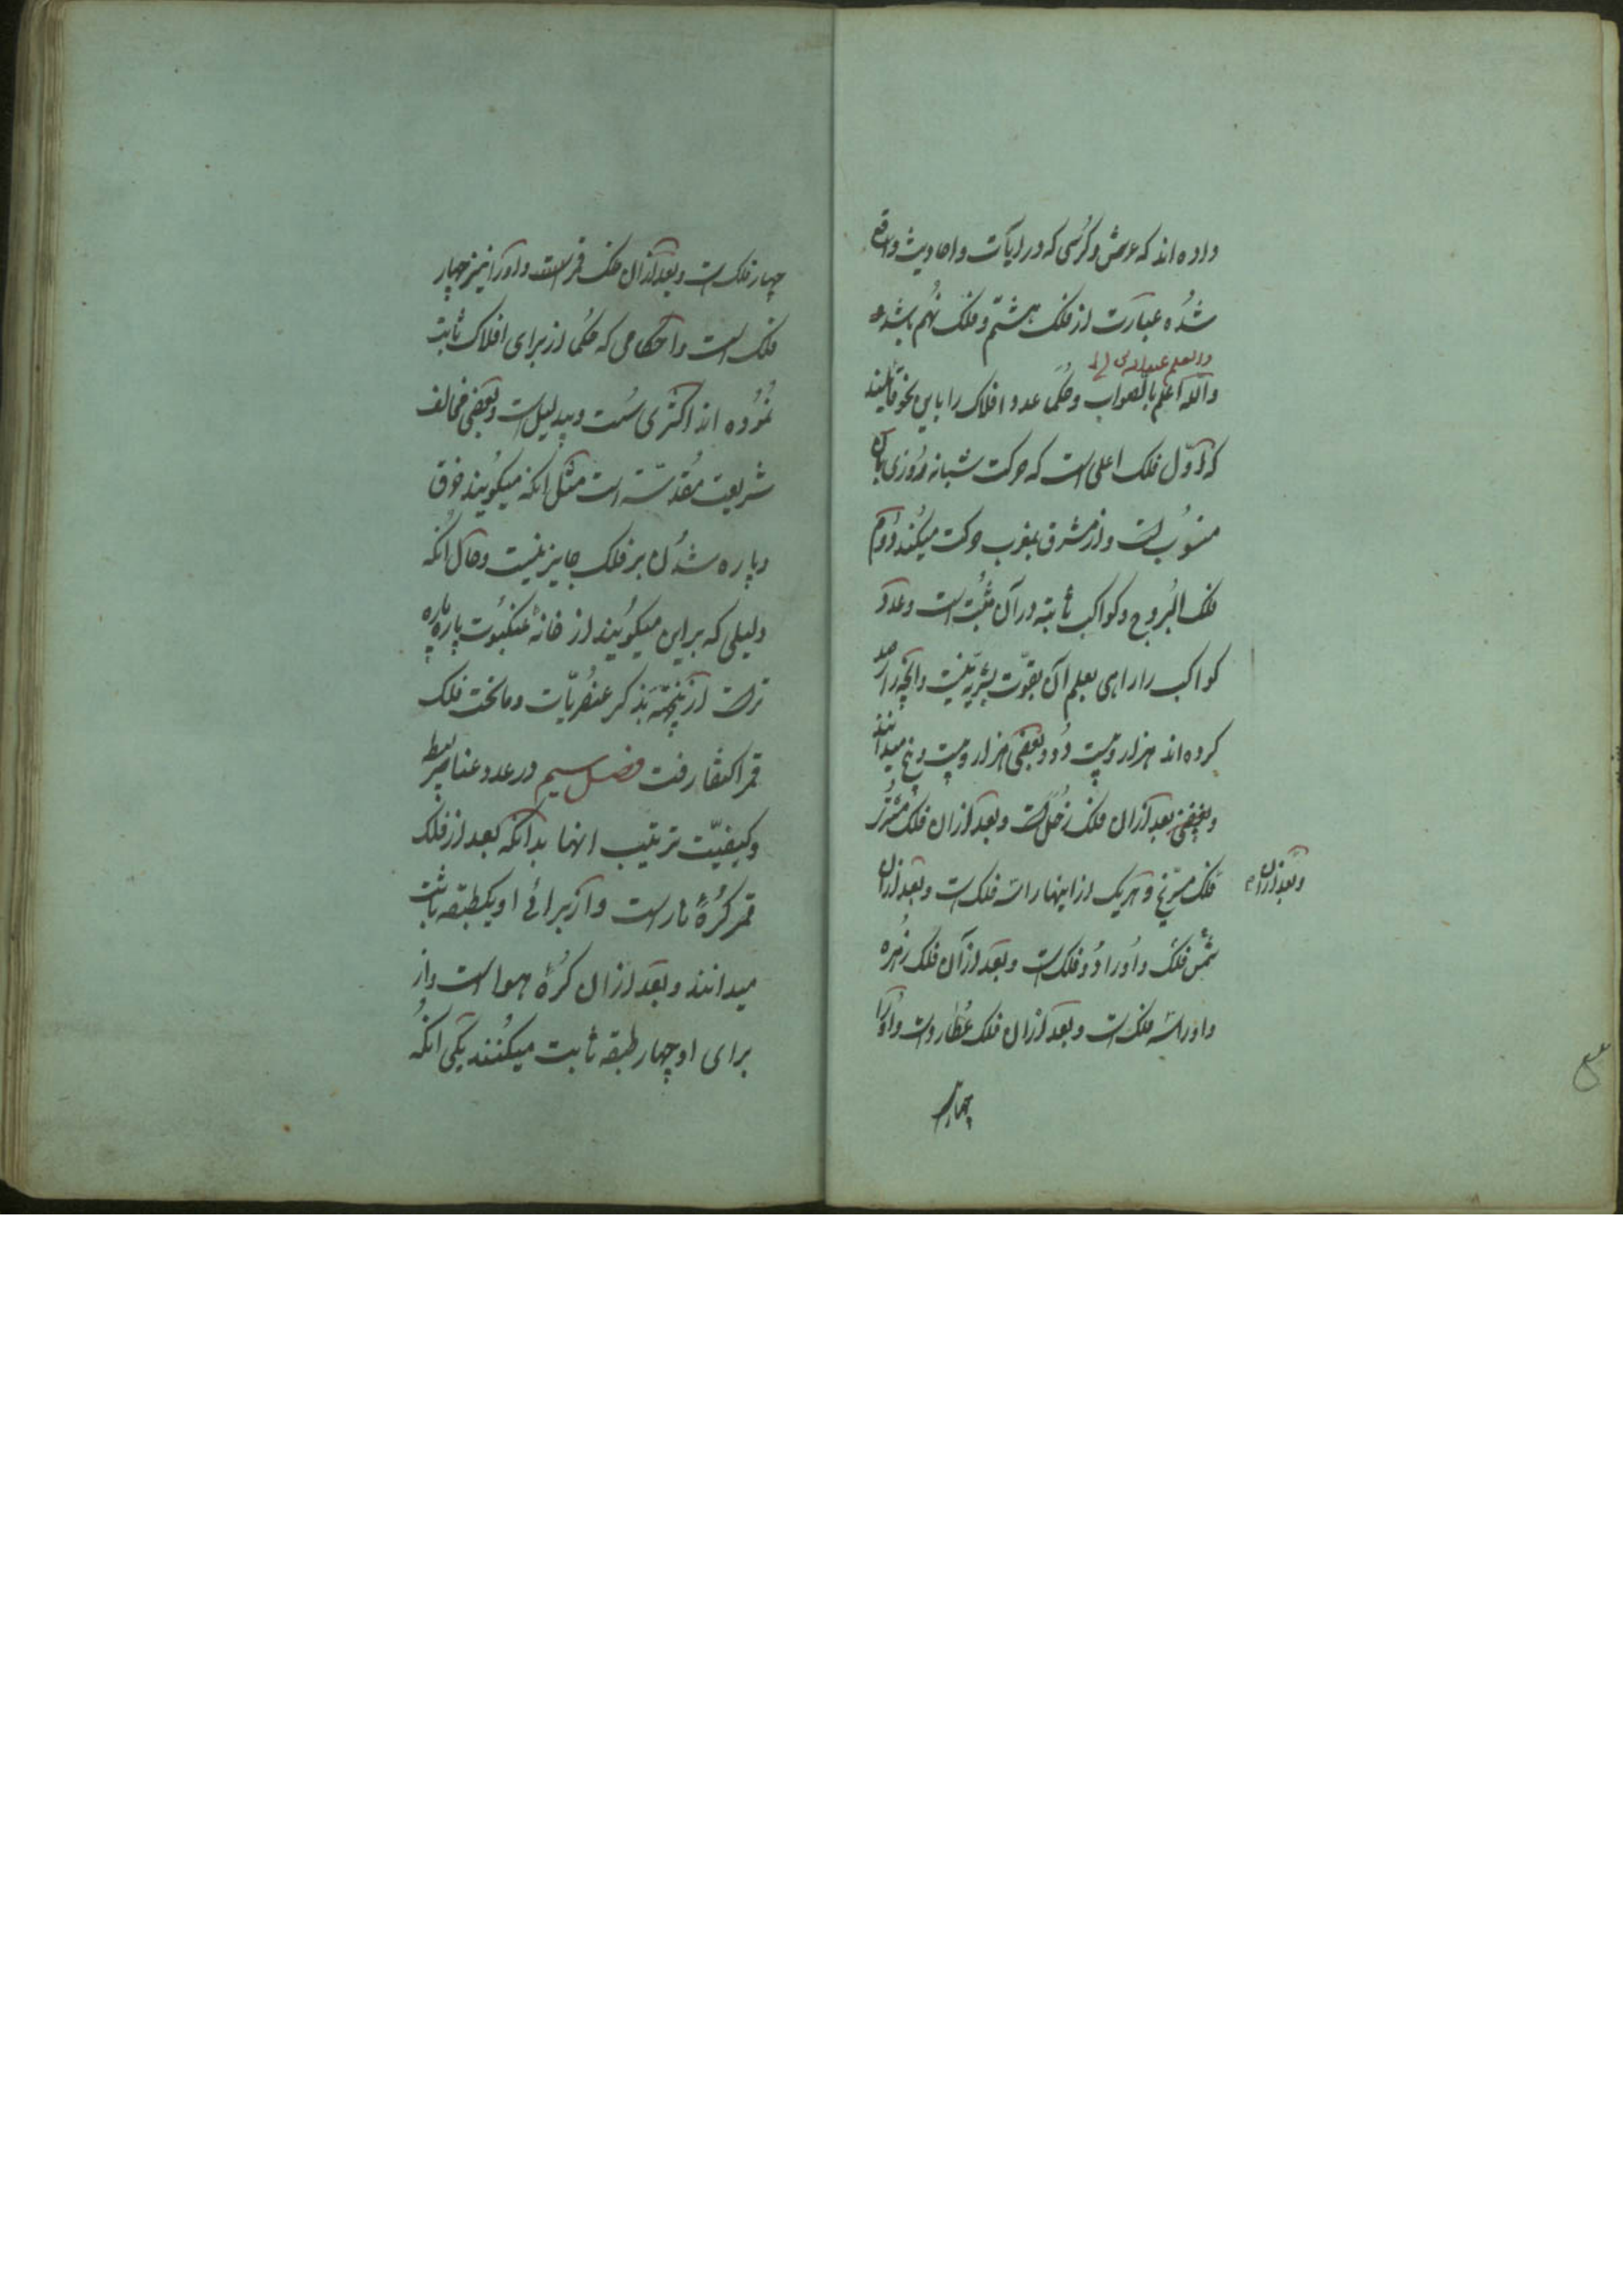 داده اند که عرش و کرسی که در آیات و احادیث واقع
شده عبارت از فلک هشتم و فلک نهم باشد
والعلم عند الله
والله اعلم بالصواب و حکما عدد افلاک را باین نحو قائلند
که اوّل فلک اعلی است که حرکت شبانه روزی بآن
منسوب است و از مشرق بمغرب حرکت میکند دوم
فلک البروج و کواکب ثابته در آن مثبت است و عدد
کواکب را راهی بعلم آن بقوّت بشریّه نیست و آنچه را رصد
کرده اند هزار و بیست و دو و بعضی هزار و بیست و پنج میدانند
و بعضی بعد از آن فلک زحل است و بعد از آن فلک مشتری
و بعد از آن
فلک مرّیخ و هریک از اینها را سه فلک است و بعد از آن
شمس فلک و او را دو فلک است و بعد از آن فلک زهره
و او را سه فلک است و بعد از آن فلک عطارد است و او را
چهار
چهار فلک است و بعد از آن فلک قمر است و او را نیز چهار
فلک است و احکامی که حکما از برای افلاک ثابت
نموده اند اکثری سست و بیدلیل است و بعضی مخالف
شریعت مقدّسه است مثل آنکه میگویند خرق
و پاره شدن بر فلک جایز نیست و حال آنکه
دلیلی که بر این میگویند از خانهٔ عنکبوت پاره پاره
تر است از پنجهته بذکر عنصریّات و ماتحت فلک
قمر اکتفا رفت فصل سیم در عدد عناصر بسیط
و کیفیّت ترتیب انها بدانکه بعد از فلک
قمر کرهٔ نار است و از برائی او یکطبقه ثابت
میدانند و بعد از آن کرهٔ هوا است و از
برای او چهار طبقه ثابت میکنند یکی آنکه